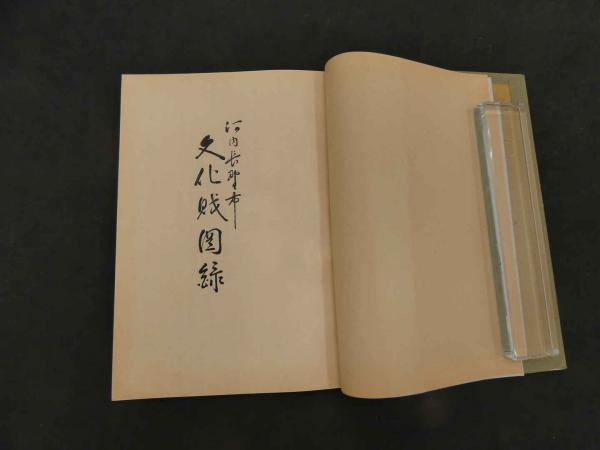 河内長野市
文化財図録